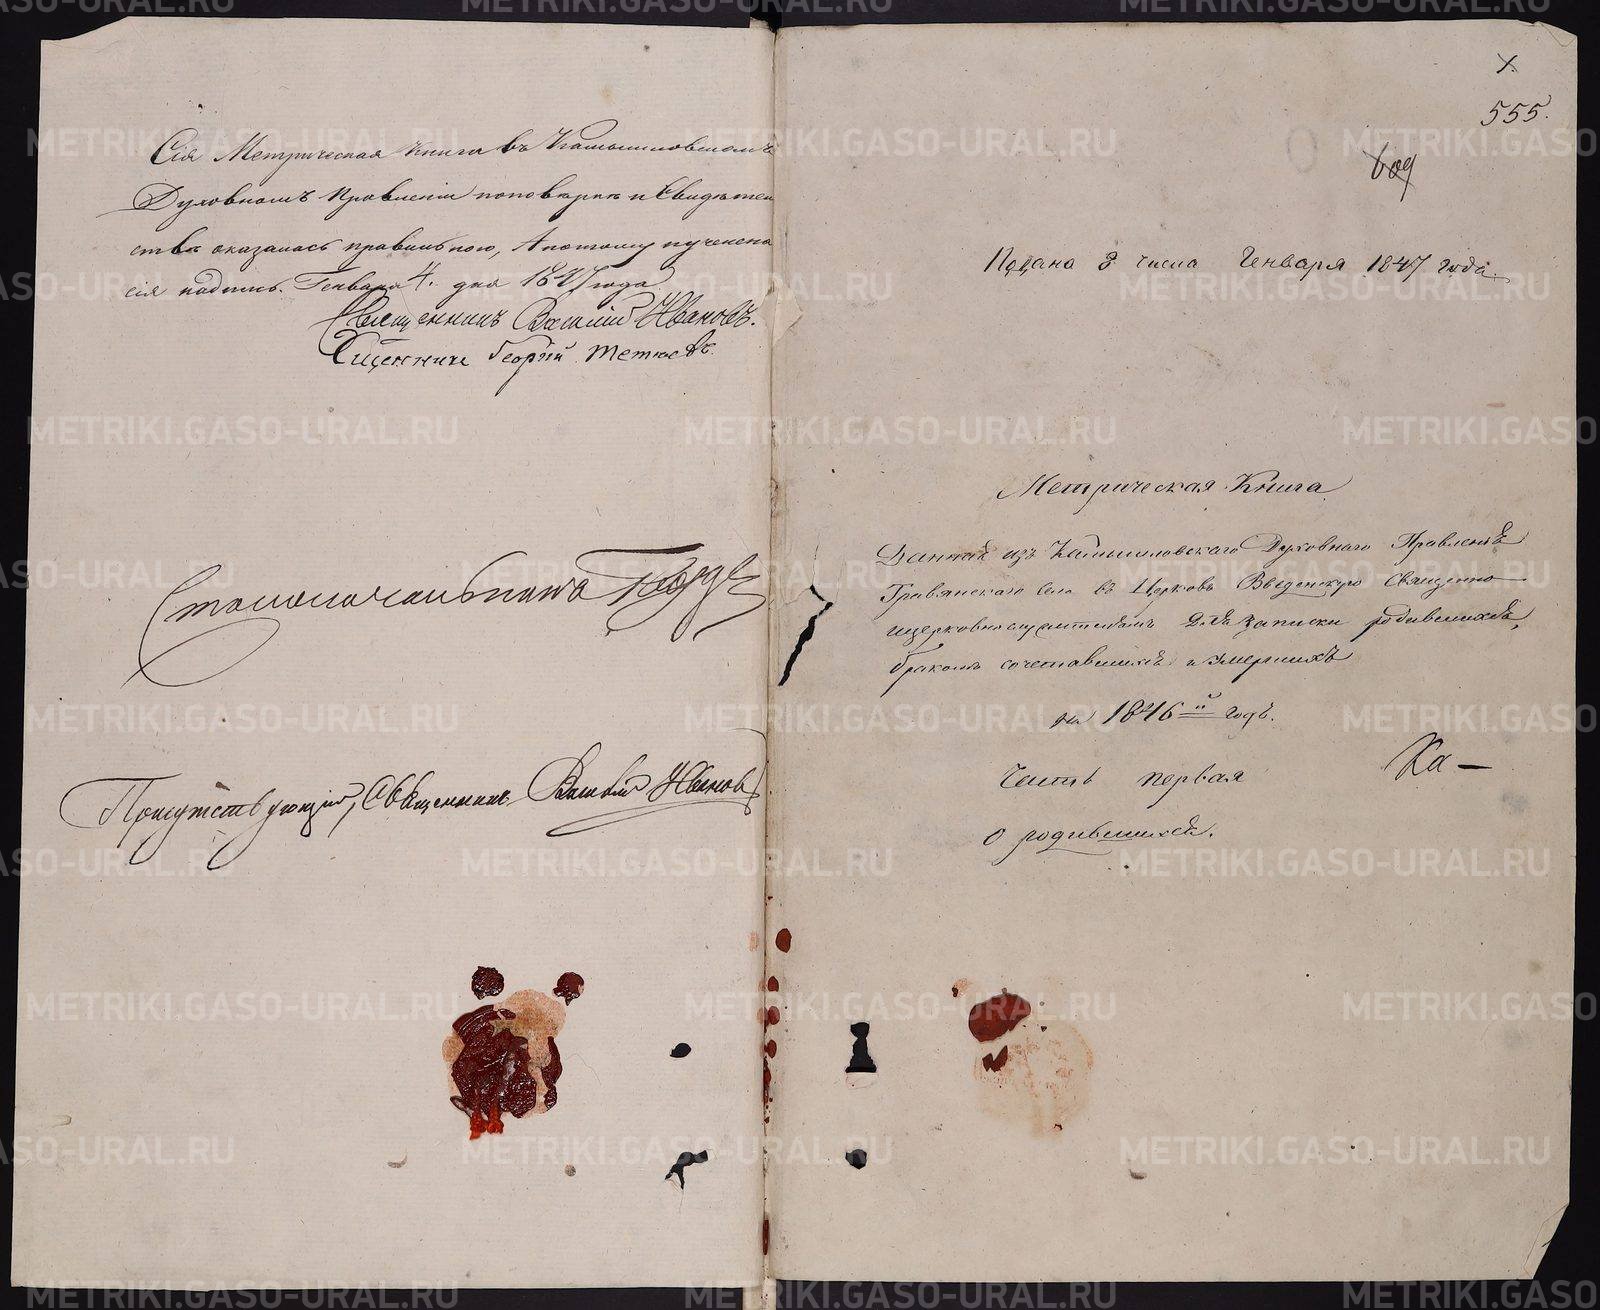 Сія Метрическая книга въ Камышловскомъ
Духовномъ Правленіи по поверке и Свидетель
ству оказалась правильною, А потому и учинена
сія надпись. Генваря 4. дня 1847 года.
Священникъ Василій Ивановъ.
Сщенникъ Георгій
Столоначальника
Присутствующій, Священникъ Василій Ивановъ
X.
555.
609
Подано 3 числа Генваря 1847 года.
Метрическая Книга
Данная изъ Камышловскаго Духовнаго Правленія
Травянскаго села въ Церковь Введенскую Священно
ицерковнослужителямъ для записки родившихся,
бракомъ сочетавшихся и умершихъ
на 1846й годъ.
Часть первая
Ка-
о родившихся.
METRIKI.GASO-URAL.RU